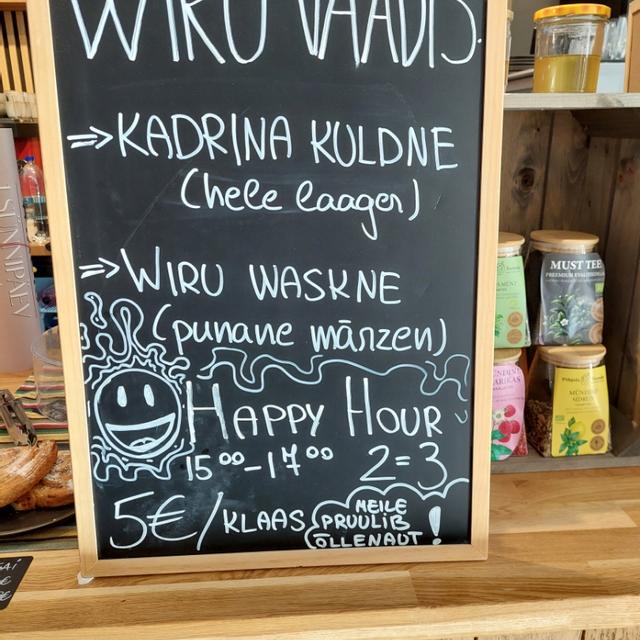 WIRU VAADIS
⇒ KADRINA KULDNE
(hele laager)
⇒ WIRU WASKNE
(punane märzen)
HAPPY HOUR
15⁰⁰-17⁰⁰ 2=3
5€/KLAAS
MEILE
PRUULIB
ÕLLENAUT!
MUST TEE